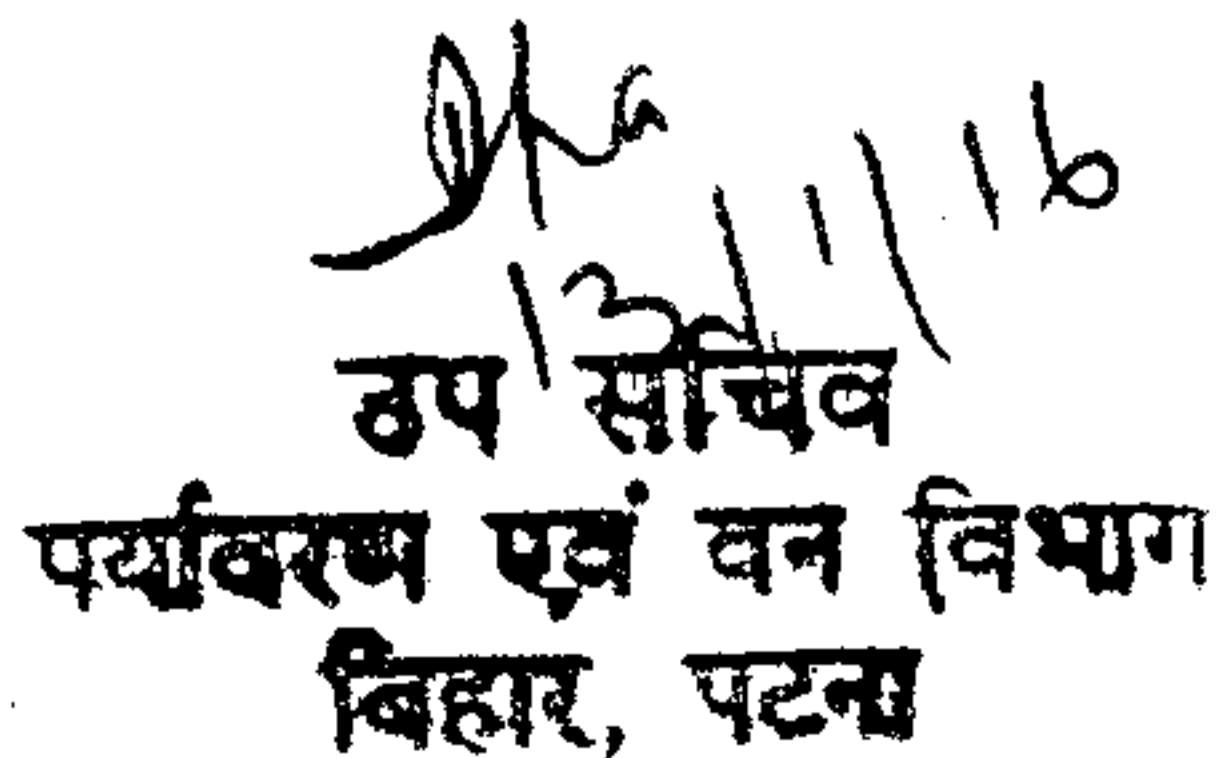 13/11/16
उप सचिव
पर्यावरण एवं वन विभाग
बिहार, पटना